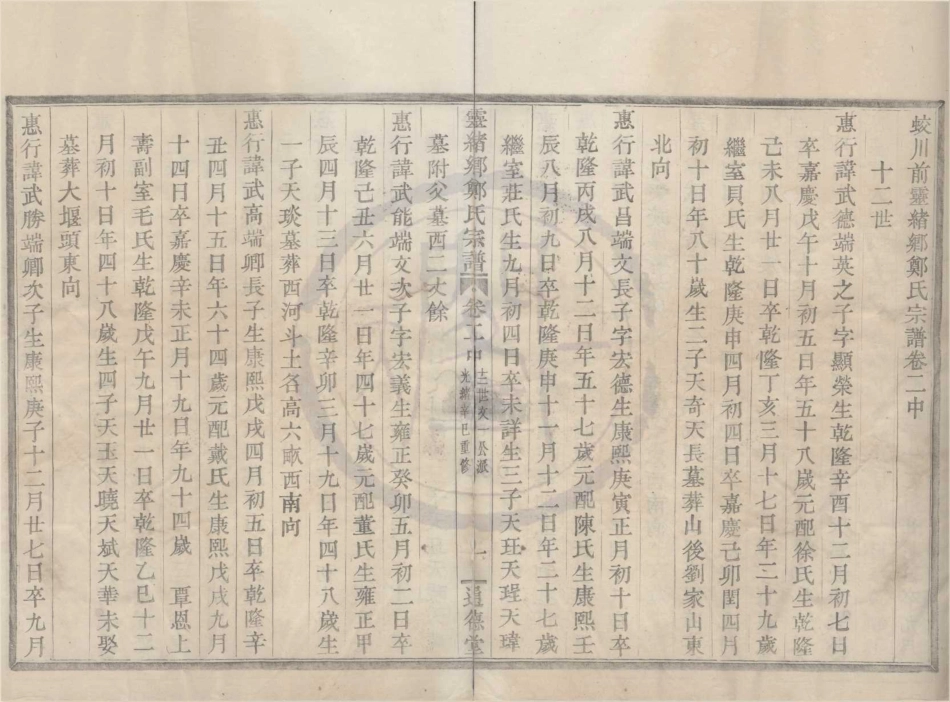 蛟川前靈緒鄉鄭氏宗譜卷二中
十二世
惠行諱武德端英之子字顯榮生乾隆辛酉十二月初七日
卒嘉慶戊午十月初五日年五十八歲元配徐氏生乾隆
己未八月廿一日卒乾隆丁亥三月十七日年二十九歲
繼室貝氏生乾隆庚申四月初四日卒嘉慶己卯閏四月
初十日年八十歲生二子天奇天長墓葬山後劉家山東
北向
惠行諱武昌端文長子字宏德生康熙庚寅正月初十日卒
乾隆丙戌八月十二日年五十七歲元配陳氏生康熙壬
辰八月初九日卒乾隆庚申十一月十二日年二十七歲
繼室莊氏生九月初四日卒未詳生三子天玨天瑆天瑋
靈緒鄉鄭氏宗譜
卷二中
十二世文一公派
光緒辛巳重修
一
道德堂
墓附父墓西二丈餘
惠行諱武能端文次子字宏義生雍正癸卯五月初二日卒
乾隆己丑六月廿一日年四十七歲元配董氏生雍正甲
辰四月十三日卒乾隆辛卯三月十九日年四十八歲生
一子天琰墓葬西河斗土名高六畝西南向
惠行諱武高端卿長子生康熙戊戌四月初五日卒乾隆辛
丑四月十五日年六十四歲元配戴氏生康熙戊戌九月
十四日卒嘉慶辛未正月十九日年九十四歲 覃恩上
壽副室毛氏生乾隆戊午九月廿一日卒乾隆乙巳十二
月初十日年四十八歲生四子天玉天曉天斌天華未娶
墓葬大堰頭東向
惠行諱武勝端卿次子生康熙庚子十二月廿七日卒九月